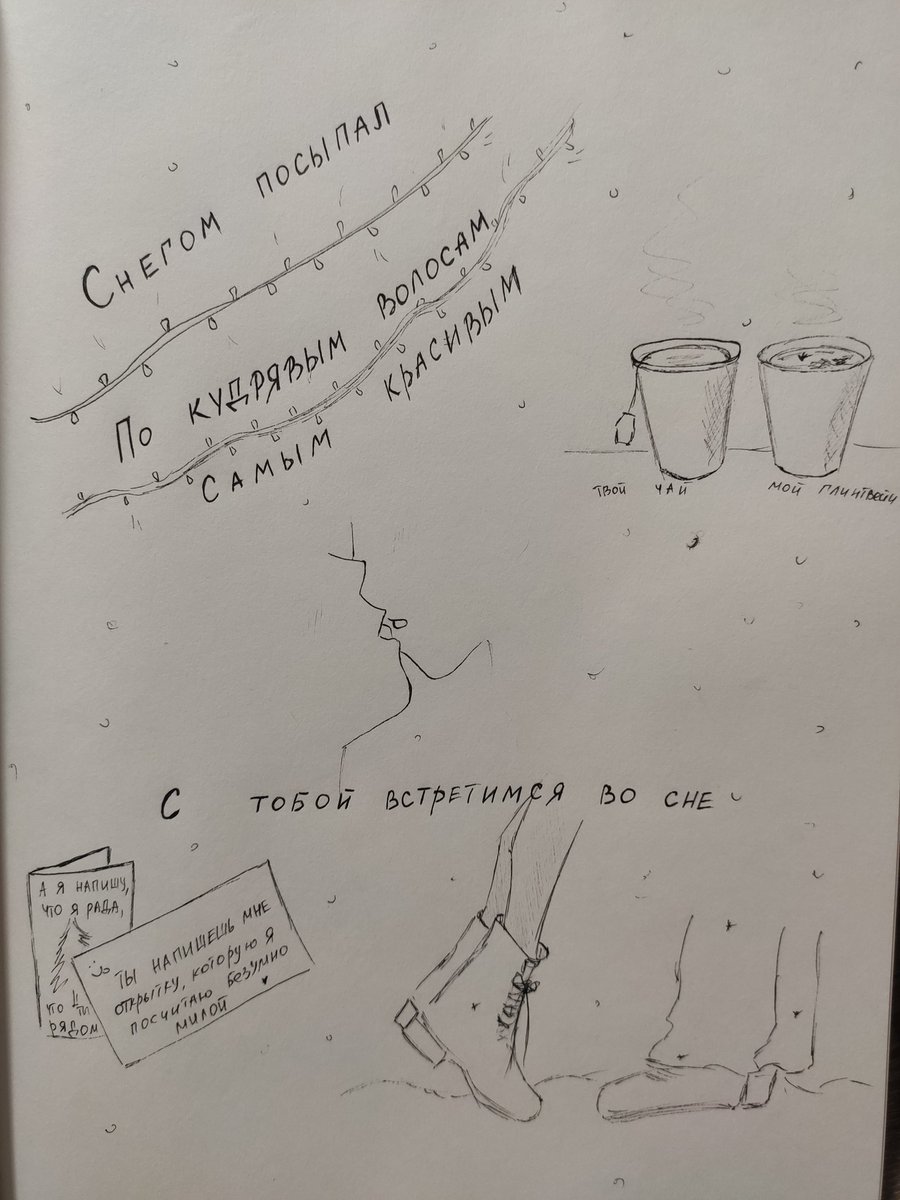 Снегом посыпал
По кудрявым волосам
Самым красивым
твой чай
мой глинтвейн
С тобой встретимся во сне
А я напишу,
что я рада,
что ты
рядом
Ты напишешь мне
открытку, которую я
посчитаю безумно
милой